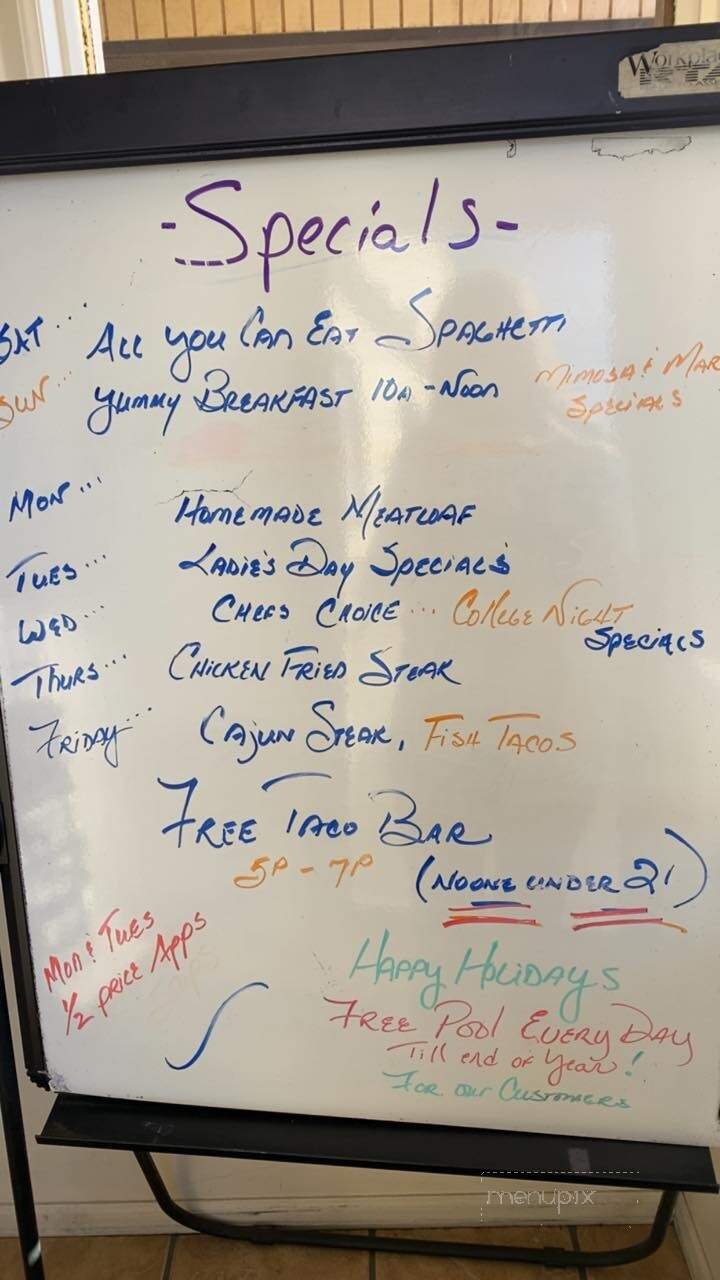 -Specials-
SAT... ALL YOU CAN EAT SPAGHETTI
SUN... YUMMY BREAKFAST 10A-NOON MIMOSA & MAR
SPECIALS
MON... HOMEMADE MEATLOAF
TUES... LADIE'S DAY SPECIALS
WED... CHEFS CHOICE... COLLEGE NIGHT
SPECIALS
THURS... CHICKEN FRIED STEAK
FRIDAY... CAJUN STEAK, FISH TACOS
FREE TACO BAR
5P-7P (NOONE UNDER 21)
MON & TUES
1/2 PRICE APPS
HAPPY HOLIDAYS
FREE POOL EVERY DAY
Till end of Year!
FOR OUR CUSTOMERS
menupix